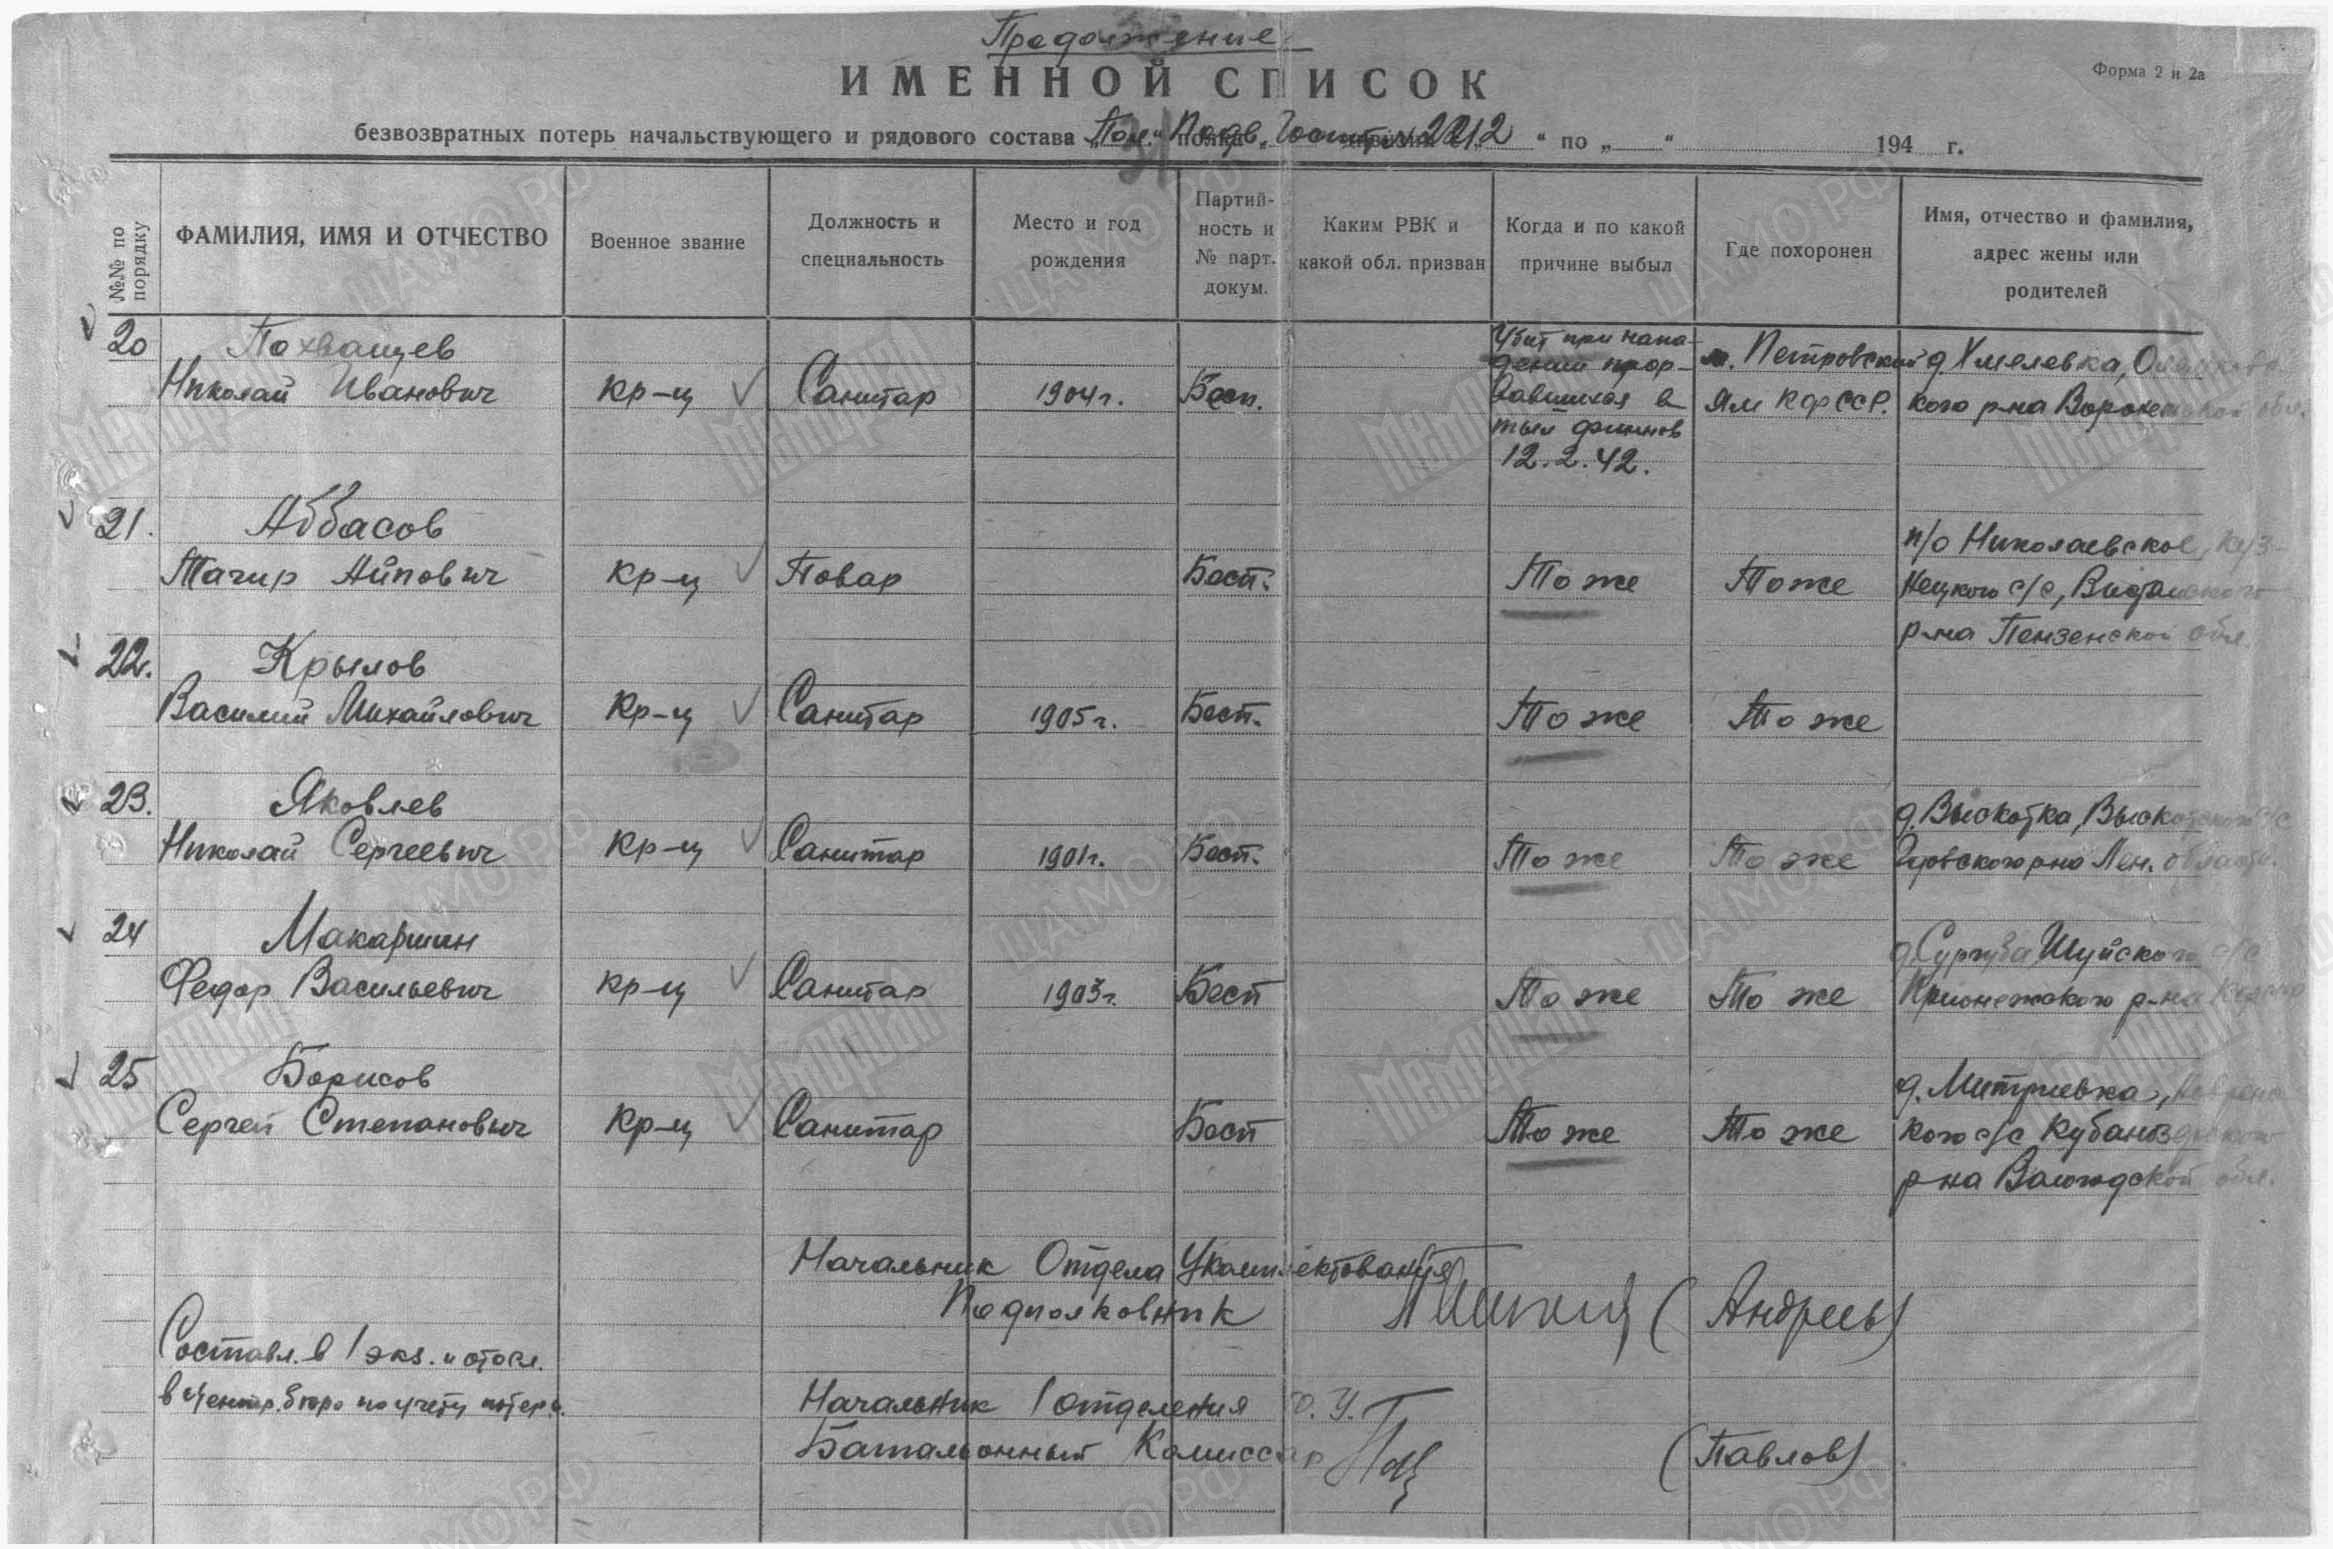 Продолжение
ИМЕННОЙ СПИСОК
Форма 2 и 2а
безвозвратных потерь начальствующего и рядового состава Пол. Подв. Госпит. № 2212 " по „ " 194 г.
№№ по порядку
ФАМИЛИЯ, ИМЯ И ОТЧЕСТВО
Военное звание
Должность и специальность
Место и год рождения
Партийность и № парт. докум.
Каким РВК и какой обл. призван
Когда и по какой причине выбыл
Где похоронен
Имя, отчество и фамилия, адрес жены или родителей
20 Похващев
Николай Иванович кр-ц Санитар 1904г. Бесп.
Убит при напа-
дении прор-
вавшихся в
тыл финнов
12.2.42.
м. Петровский
Ям КФССР.
д. Хмелевка,
кого р-на Воронежской обл.
21. Аббасов
Тагир Айпович кр-ц Повар Бесп. То же То же
п/о Николаевское, Куз-
нецкого с/с,
р-на Пензенской обл.
22. Крылов
Василий Михайлович кр-ц Санитар 1905г. Бесп. То же То же
23. Яковлев
Николай Сергеевич кр-ц Санитар 1901г. Бесп. То же То же
д. Выскотка, Выскотского с/с
Гдовского р-на Лен. области.
24 Макаршин
Федор Васильевич кр-ц Санитар 1903г. Бесп То же То же
д. Шуйского с/с
Прионежского р-на
25 Борисов
Сергей Степанович кр-ц Санитар Бесп То же То же
д. Митриевка,
кого с/с Кубаноз
р-на Вологодской обл.
Начальник Отдела Укомплектования
Подполковник (Андреев)
Составл. в 1 экз. и отосл.
в Центр. бюро по учету потерь.
Начальник 1 отделения О.У.
Батальонный Комиссар (Павлов)
ЦАМО РФ
Мемориал